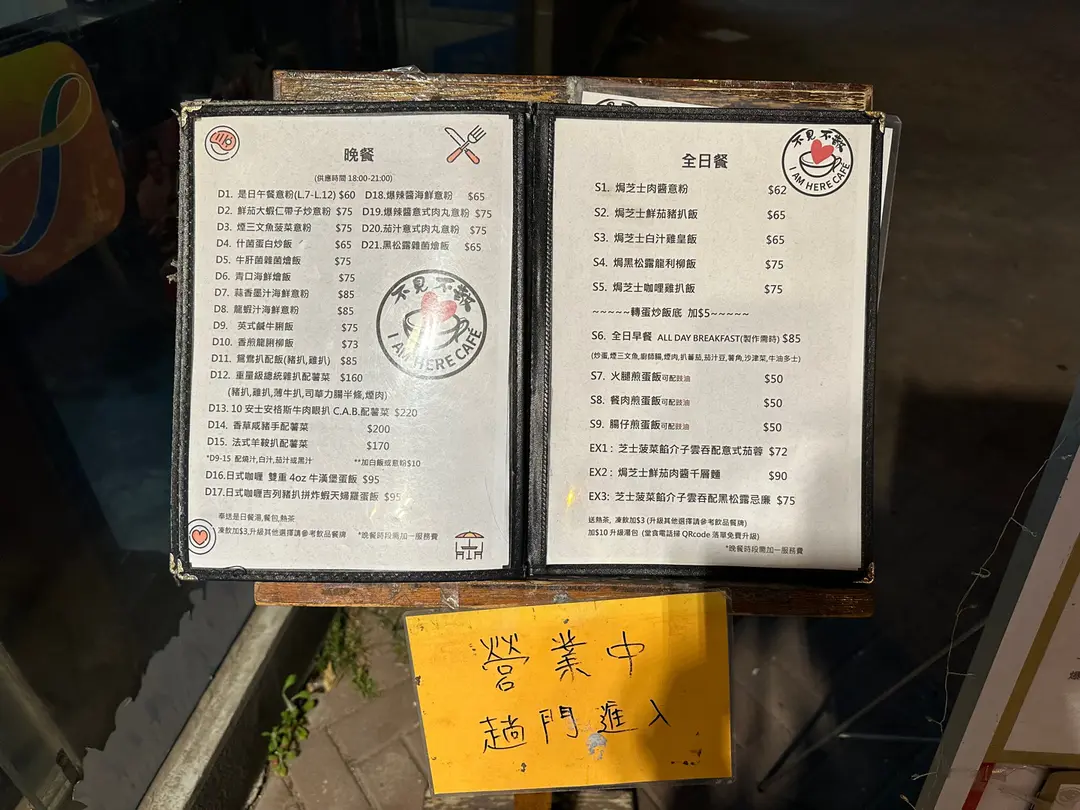 晚餐
(供應時間 18:00-21:00)
D1. 是日午餐意粉(L.7-L.12) $60
D2. 鮮茄大蝦仁帶子炒意粉 $75
D3. 煙三文魚菠菜意粉 $75
D4. 什菌蛋白炒飯 $65
D5. 牛肝菌雜菌燴飯 $75
D6. 青口海鮮燴飯 $75
D7. 蒜香墨汁海鮮意粉 $85
D8. 龍蝦汁海鮮意粉 $85
D9. 英式鹹牛脷飯 $75
D10. 香煎龍脷柳飯 $73
D11. 鴛鴦扒配飯(豬扒,雞扒) $85
D12. 重量級總統雜扒配薯菜 $160
(豬扒,雞扒,薄牛扒,司華力腸半條,煙肉)
D13. 10 安士安格斯牛肉眼扒 C.A.B.配薯菜 $220
D14. 香草咸豬手配薯菜 $200
D15. 法式羊鞍扒配薯菜 $170
*D9-15 配燒汁,白汁,茄汁或黑汁 **加白飯或意粉$10
D16.日式咖喱 雙重 4oz 牛漢堡蛋飯 $95
D17.日式咖喱吉列豬扒拼炸蝦天婦羅蛋飯 $95
D18.爆辣醬海鮮意粉 $65
D19.爆辣醬意式肉丸意粉 $75
D20.茄汁意式肉丸意粉 $75
D21.黑松露雜菌燴飯 $65
不見不散
I AM HERE CAFE
奉送是日餐湯,餐包,熱茶
凍飲加$3,升級其他選擇請參考飲品餐牌 *晚餐時段需加一服務費
全日餐
不見不散
I AM HERE CAFE
S1. 焗芝士肉醬意粉 $62
S2. 焗芝士鮮茄豬扒飯 $65
S3. 焗芝士白汁雞皇飯 $65
S4. 焗黑松露龍利柳飯 $75
S5. 焗芝士咖哩雞扒飯 $75
~~~~~轉蛋炒飯底 加$5~~~~~
S6. 全日早餐 ALL DAY BREAKFAST(製作需時) $85
(炒蛋,煙三文魚,廚師腸,煙肉,扒蕃茄,茄汁豆,薯角,沙津菜,牛油多士)
S7. 火腿煎蛋飯可配豉油 $50
S8. 餐肉煎蛋飯可配豉油 $50
S9. 腸仔煎蛋飯可配豉油 $50
EX1: 芝士菠菜餡介子雲吞配意式茄蓉 $72
EX2: 焗芝士鮮茄肉醬千層麵 $90
EX3: 芝士菠菜餡介子雲吞配黑松露忌廉 $75
送熱茶, 凍飲加$3 (升級其他選擇請參考飲品餐牌)
加$10 升級湯包 (堂食電話掃 QRcode 落單免費升級)
*晚餐時段需加一服務費
營業中
趟門進入